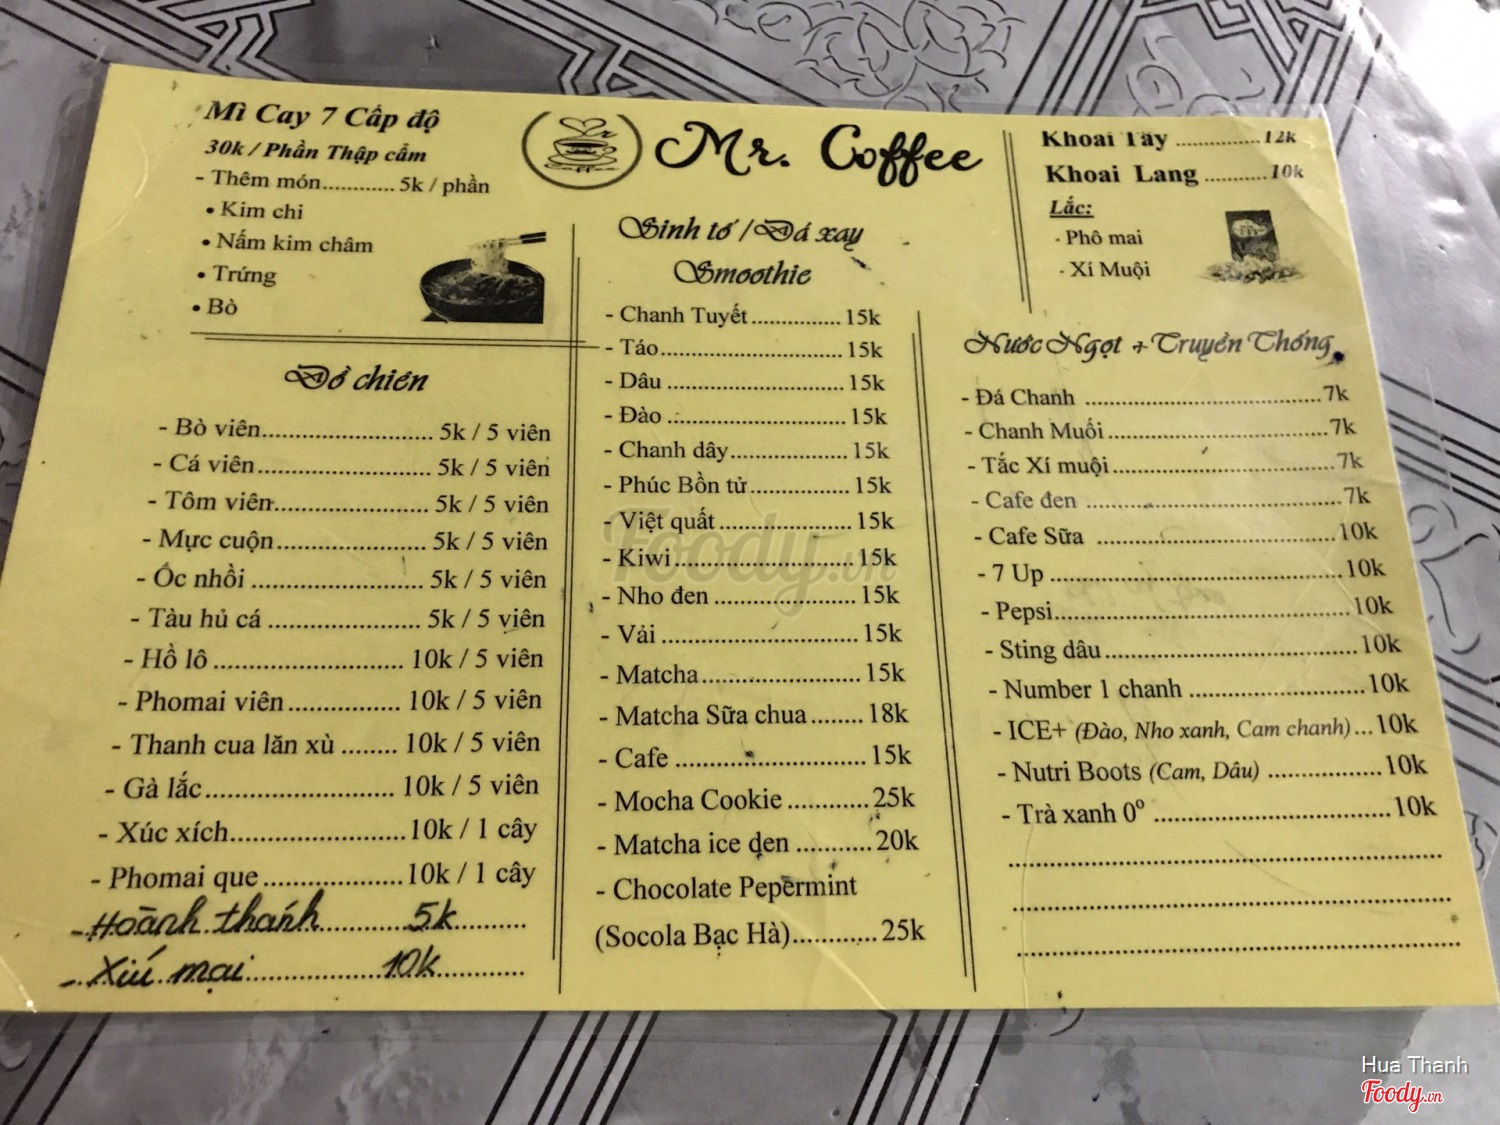 Mì Cay 7 Cấp độ
30k / Phần Thập cẩm
- Thêm món............ 5k / phần
• Kim chi
• Nấm kim châm
• Trứng
• Bò
Mr. Coffee
Khoai Tây ..............12k
Khoai Lang ...........10k
Lắc:
- Phô mai
- Xí Muội
Đồ chiên
- Bò viên.......................... 5k / 5 viên
- Cá viên.......................... 5k / 5 viên
- Tôm viên....................... 5k / 5 viên
- Mực cuộn...................... 5k / 5 viên
- Ốc nhồi ......................... 5k / 5 viên
- Tàu hủ cá ...................... 5k / 5 viên
- Hồ lô ............................ 10k / 5 viên
- Phomai viên................. 10k / 5 viên
- Thanh cua lăn xù ........ 10k / 5 viên
- Gà lắc............................ 10k / 5 viên
- Xúc xích.........................10k / 1 cây
- Phomai que....................10k / 1 cây
- Hoành thánh 5k
- Xíú mại 10k
Sinh tố / Đá xay
Smoothie
- Chanh Tuyết............... 15k
- Táo.............................. 15k
- Dâu ............................. 15k
- Đào ............................. 15k
- Chanh dây................... 15k
- Phúc Bồn tử................ 15k
- Việt quất ..................... 15k
- Kiwi............................. 15k
- Nho đen ...................... 15k
- Vải .............................. 15k
- Matcha........................ 15k
- Matcha Sữa chua........ 18k
- Cafe ............................ 15k
- Mocha Cookie ............25k
- Matcha ice den ...........20k
- Chocolate Pepermint
(Socola Bạc Hà)............ 25k
Nước Ngọt + Truyền Thống
- Đá Chanh ....................................7k
- Chanh Muối.................................7k
- Tắc Xí muội.................................7k
- Cafe đen ......................................7k
- Cafe Sữa ....................................10k
- 7 Up ...........................................10k
- Pepsi...........................................10k
- Sting dâu.....................................10k
- Number 1 chanh .........................10k
- ICE+ (Đào, Nho xanh, Cam chanh)...10k
- Nutri Boots (Cam, Dâu) ................10k
- Trà xanh 0º ..................................10k
Foody.vn
Hua Thanh
Foody.vn